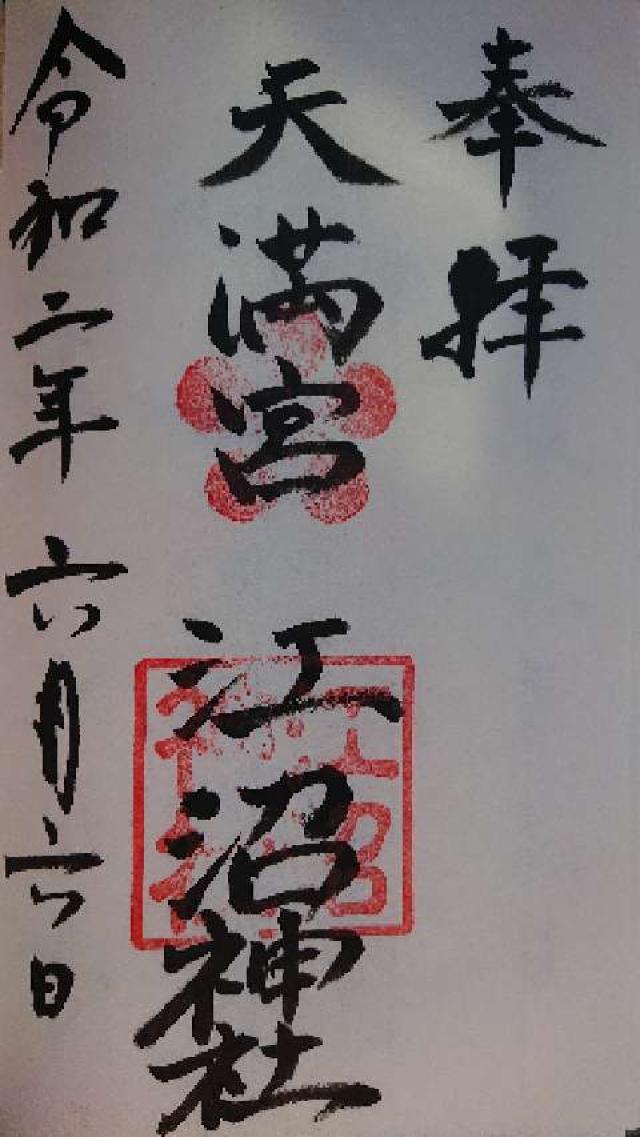 奉拝
天満宮
江沼神社
令和二年 六月六日